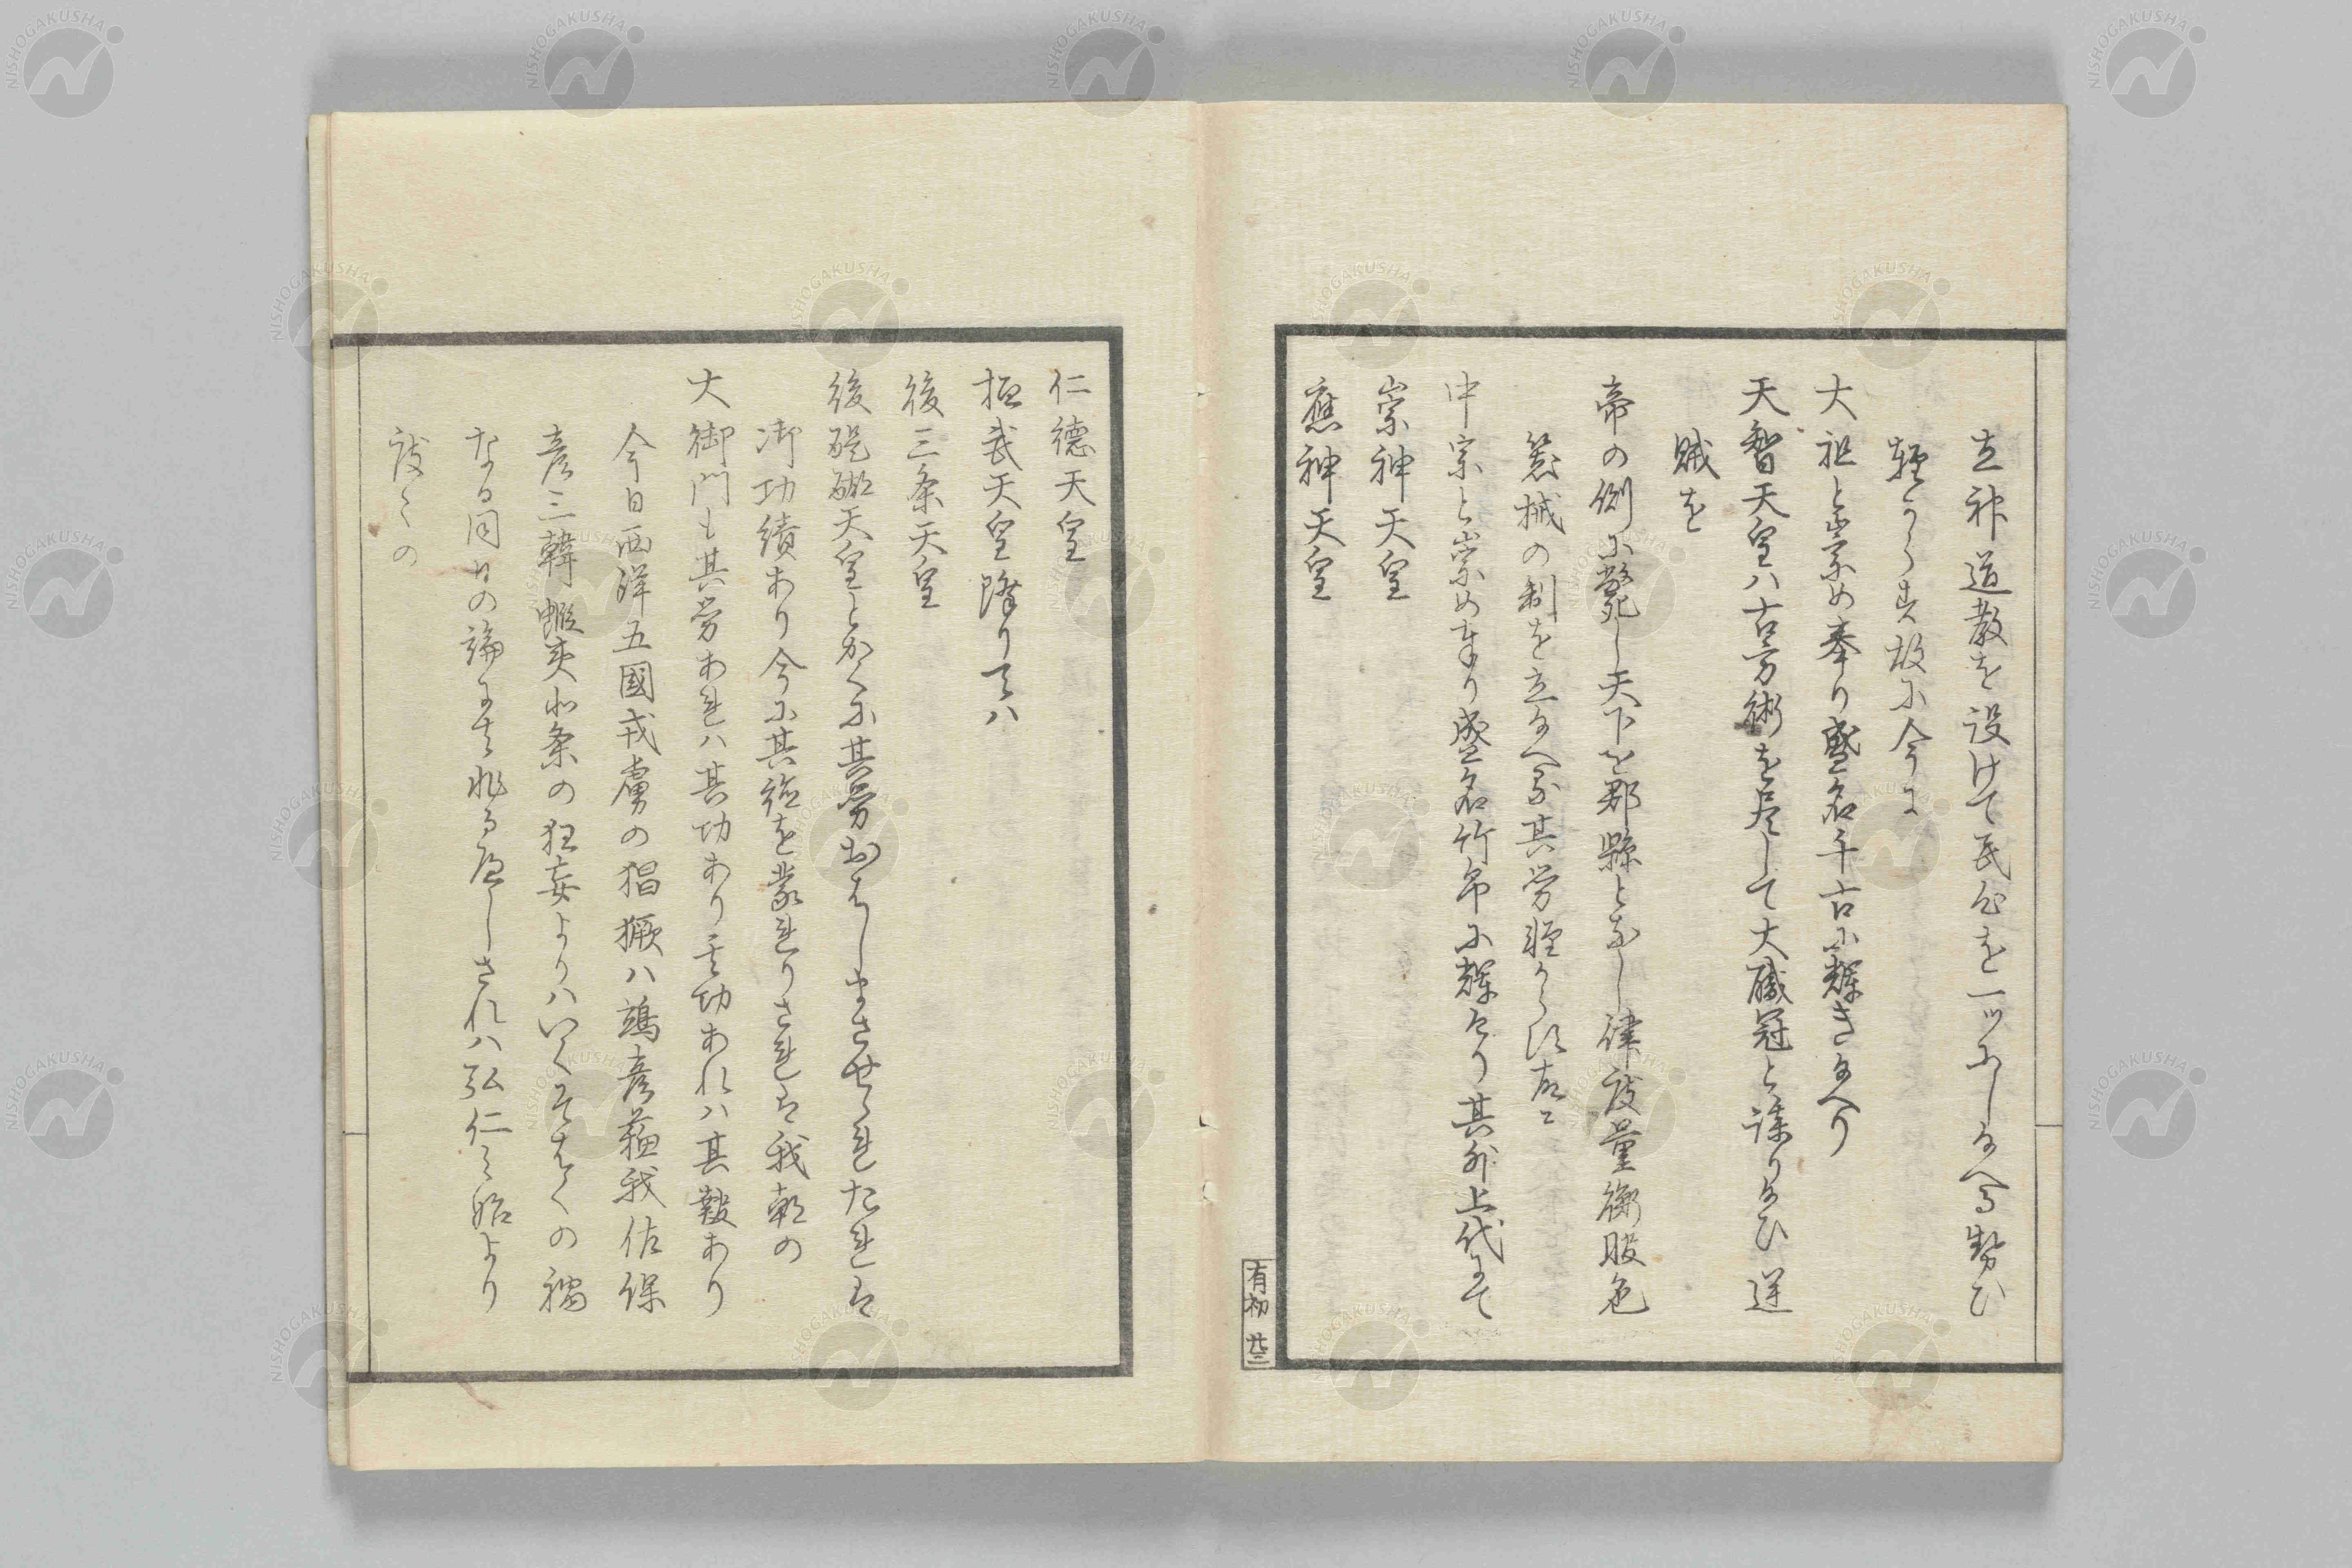 立神道教を設けて民心を一ツにしなへる勢ひ
軽からす故に今に
大祖と崇め奉り盛名千古に輝きなへり
天智天皇ハ古方術を尽して大職冠と謀りなひ逆
賊を
帝の側に斃し天下を郡縣となし律度量衡服色
器械の制を立なへる其労軽からす故に
中宗と崇め奉り盛名竹帛に輝けり其外上代にて
崇神天皇
應神天皇
有初 廿三
仁徳天皇
桓武天皇降りてハ
後三条天皇
後醍醐天皇とかくに其労おはしまさせられたれは
御功績あり今に其徳を蒙れりされは我朝の
大御門も其労あれハ其功あり其功あれハ其報あり
今日西洋五國戎虜の猖獗ハ鴻彦蘓我佐保
彦三韓蝦夷北条の狂妄よりハいくそはくの禍
なる同日の論にて非る歴しされハ弘仁之始より
度々の